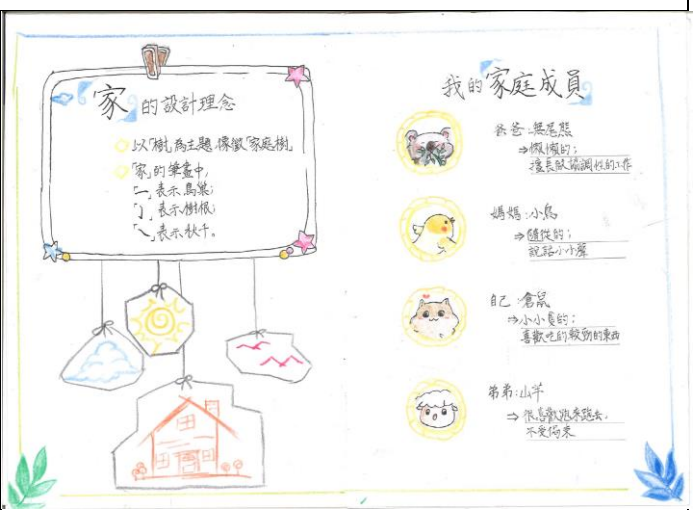 「家」的設計理念
以「樹」為主題,像徵「家庭樹」
「家」的筆畫中,
「一」表示鳥巢;
「亅」表示樹根;
「㇏」表示秋千。
我的「家庭成員」
爸爸:無尾熊
⇒懶懶的;
擅長做協調性的工作
媽媽:小鳥
⇒隨從的;
說話小小聲
自己:倉鼠
⇒小小隻的;
喜歡吃的較勁的東西
弟弟:山羊
⇒很喜歡跑來跑去,
不受拘束